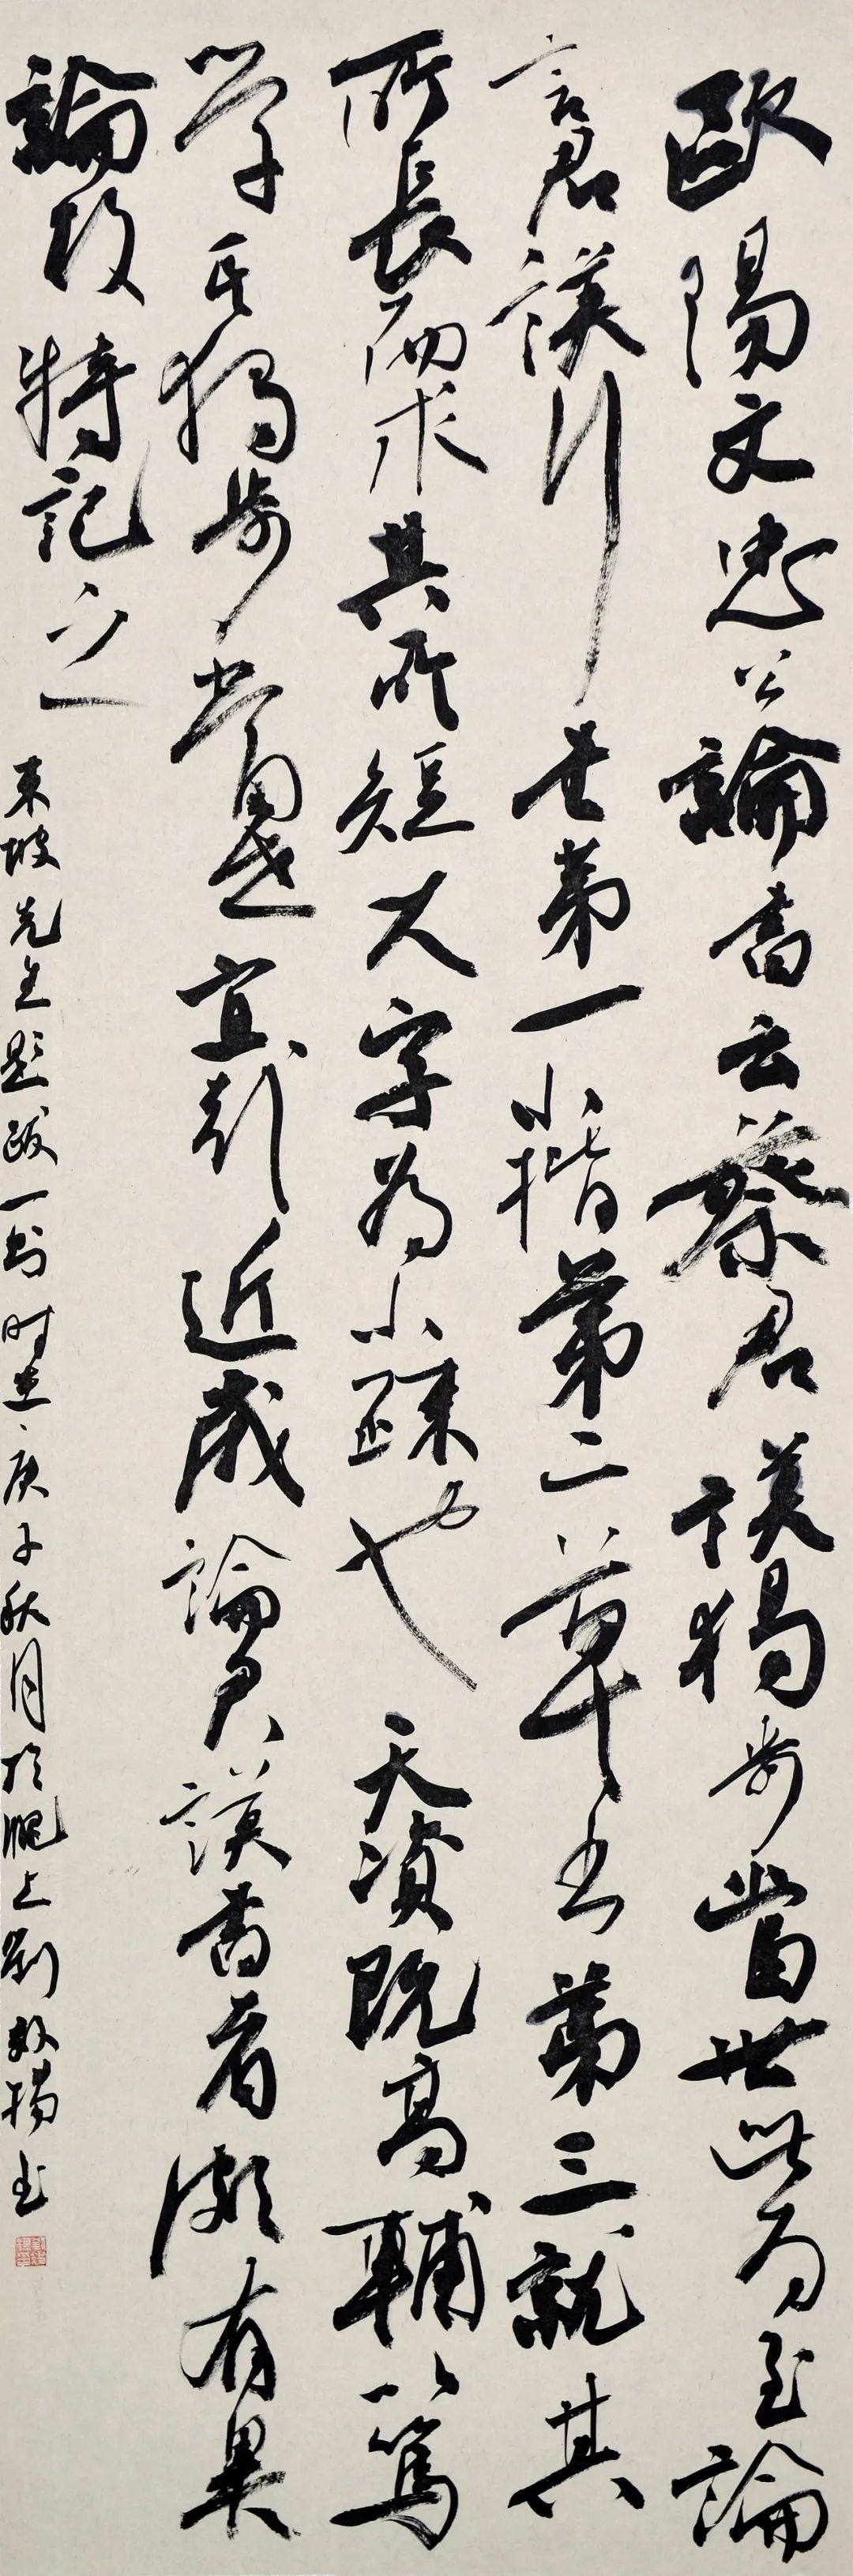 歐陽文忠公論書云蔡君謨獨步當世此為至論
言君謨行書第一小楷第二草書第三就其
所長而求其所短大字為小疎也天資既高輔以篤
学其獨步當世宜哉近歲論君謨書者頗有異
論故特記之
東坡先生題跋一則时在庚子秋月於上劉書